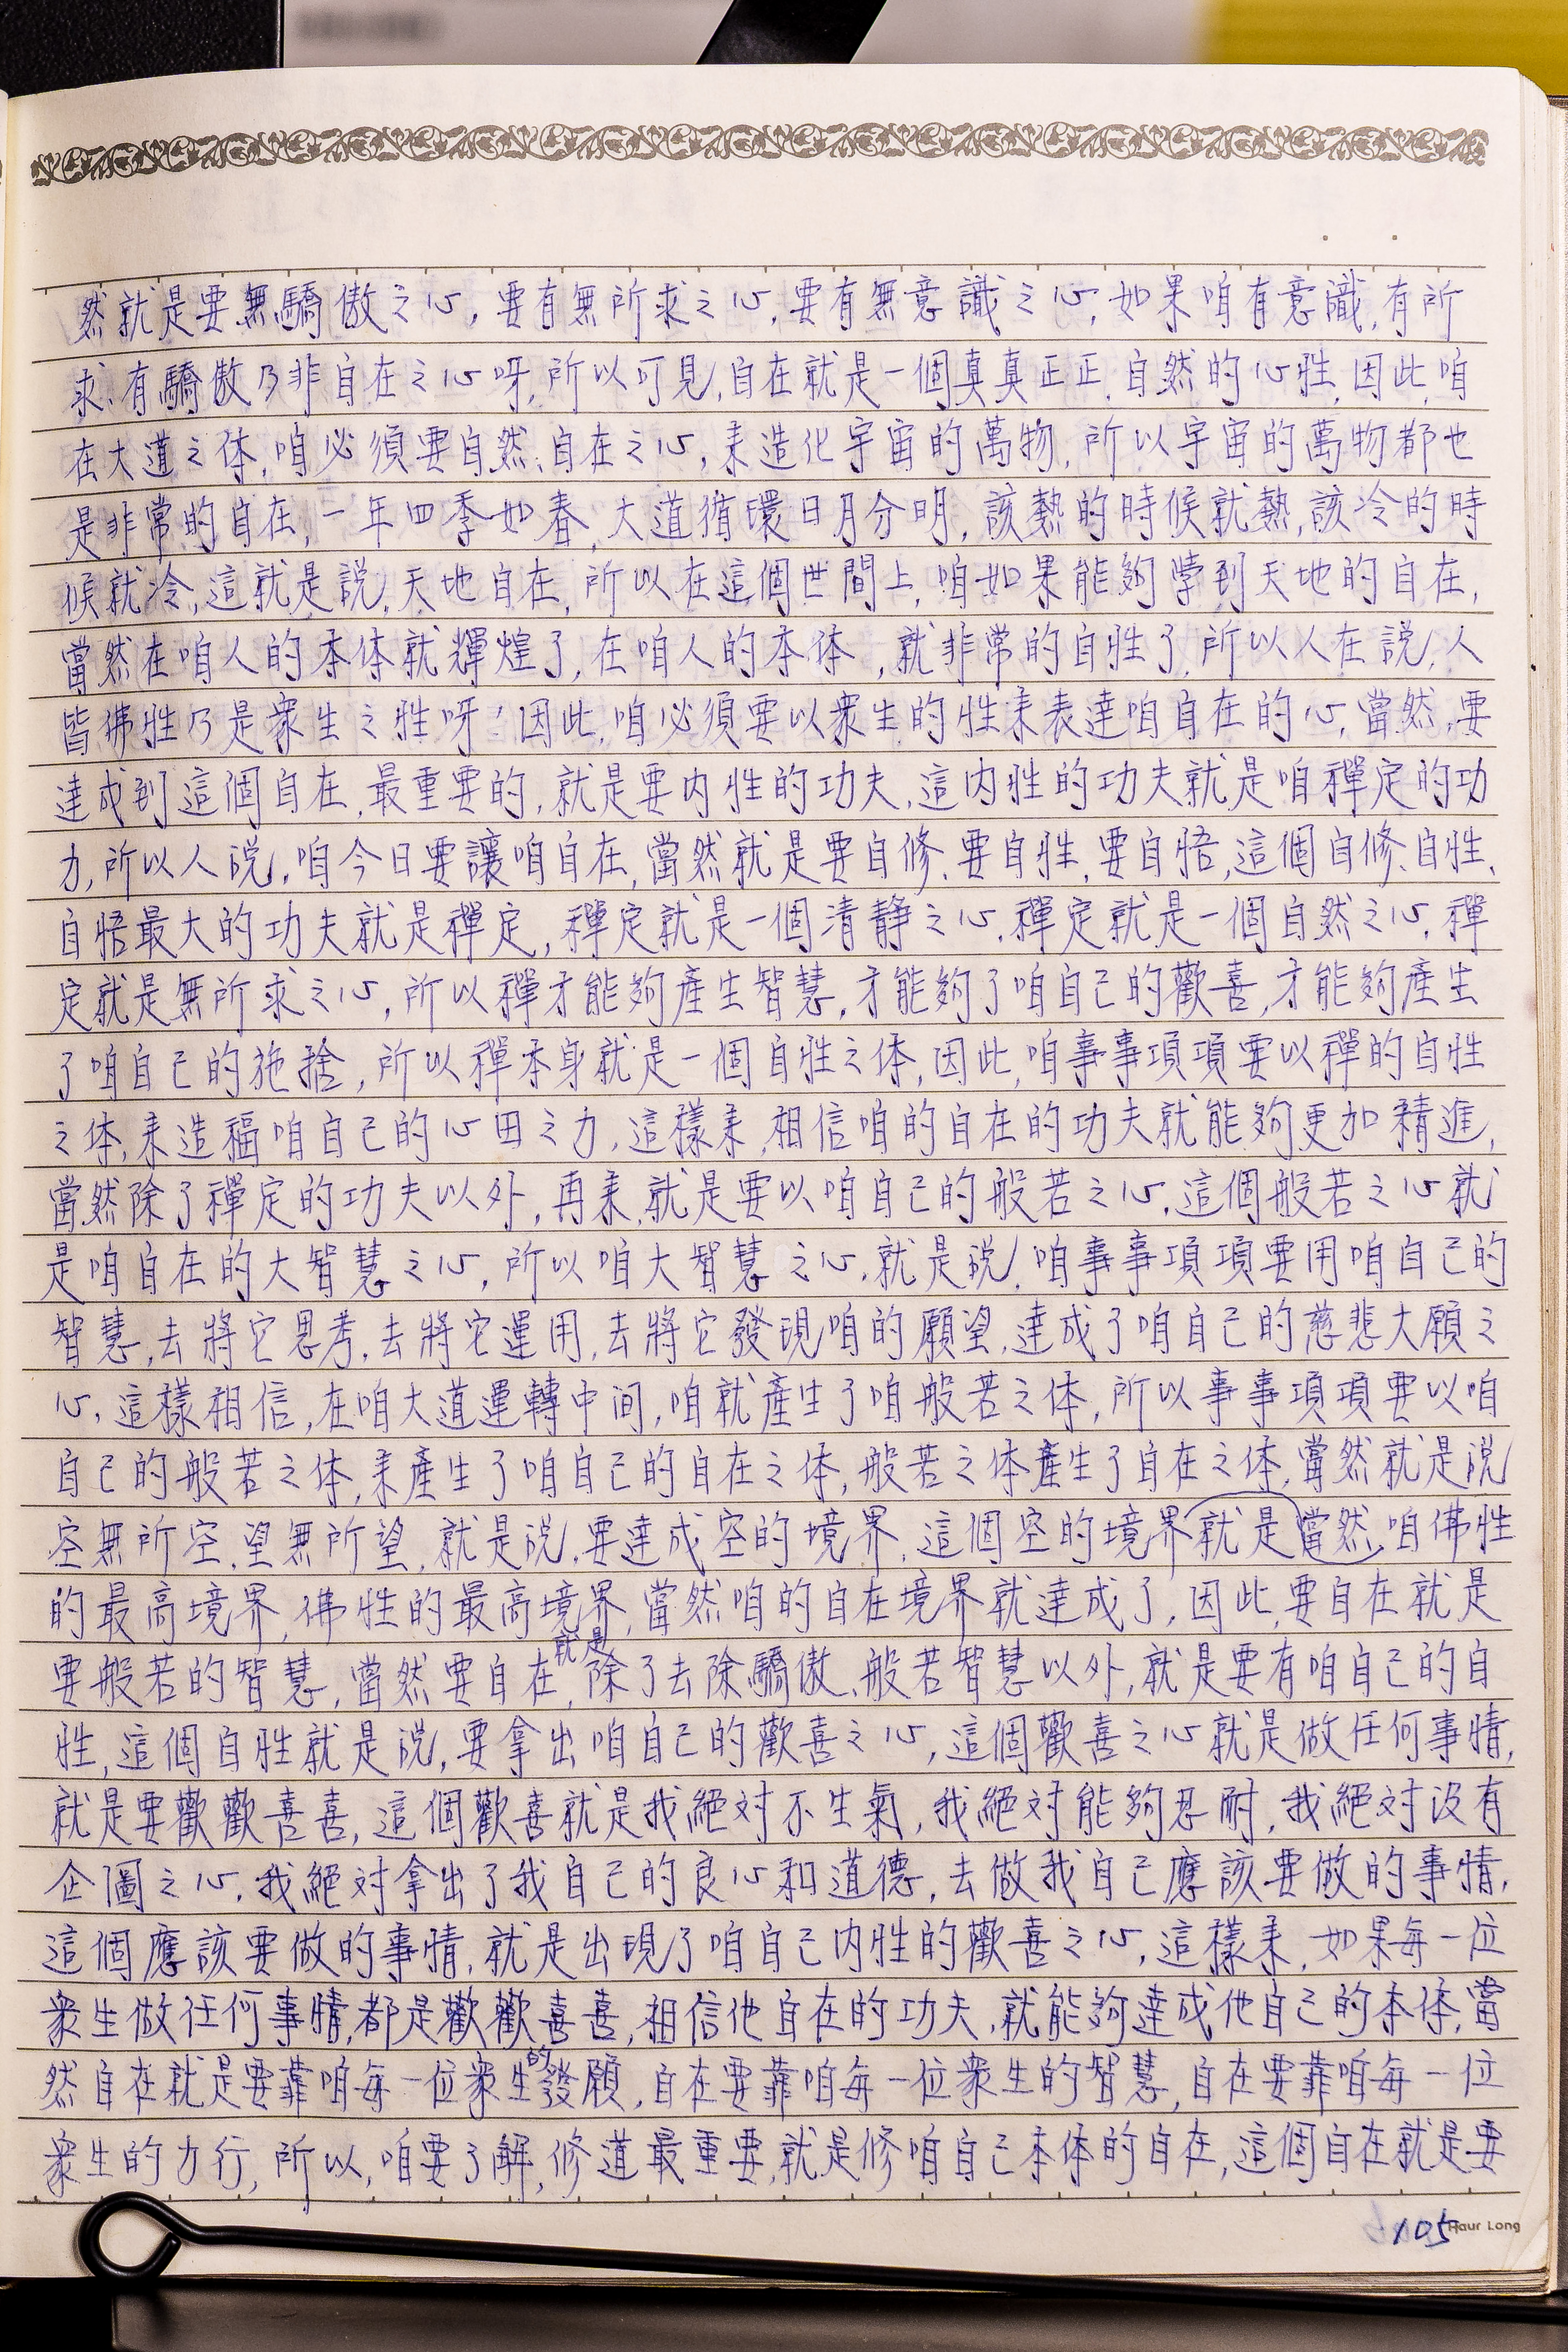 然就是要無驕傲之心,要有無所求之心,要有無意識之心,如果咱有意識,有所
求、有驕傲乃非自在之心呀,所以可見,自在就是一個真真正正、自然的心性,因此,咱
在大道之体,咱必須要自然、自在之心,来造化宇宙的萬物,所以宇宙的萬物都也
是非常的自在,一年四季如春,大道循環日月分明,該熱的時候就熱,該冷的時
候就冷,這就是說,天地自在,所以在這個世間上,咱如果能夠學到天地的自在,
當然在咱人的本体就輝煌了,在咱人的本体,就非常的自性了,所以人在說,人
皆佛性乃是衆生之性呀!因此,咱必須要以衆生的性来表達咱自在的心,當然,要
達成到這個自在,最重要的,就是要内性的功夫,這内性的功夫就是咱禪定的功
力,所以人說,咱今日要讓咱自在,當然就是要自修、要自性,要自悟,這個自修、自性、
自悟最大的功夫就是禪定,禪定就是一個清静之心,禪定就是一個自然之心,禪
定就是無所求之心,所以禪才能夠產生智慧,才能夠了咱自己的歡喜,才能夠產生
了咱自己的施捨,所以禪本身就是一個自性之体,因此,咱事事項項要以禪的自性
之体,来造福咱自己的心田之力,這樣来,相信咱的自在的功夫就能夠更加精進,
當然除了禪定的功夫以外,再来,就是要以咱自己的般若之心,這個般若之心就
是咱自在的大智慧之心,所以咱大智慧之心,就是說,咱事事項項要用咱自己的
智慧,去將它思考,去將它運用,去將它發現咱的願望,達成了咱自己的慈悲大願之
心,這樣相信,在咱大道運轉中间,咱就產生了咱般若之体,所以事事項項要以咱
自己的般若之体,来產生了咱自己的自在之体,般若之体產生了自在之体,當然就是說
空無所空,望無所望,就是說,要達成空的境界,這個空的境界就是當然咱佛性
的最高境界,佛性的最高境界,當然咱的自在境界就達成了,因此,要自在就是
要般若的智慧,當然要自在,就是除了去除驕傲、般若智慧以外,就是要有咱自己的自
性,這個自性就是說,要拿出咱自己的歡喜之心,這個歡喜之心就是做任何事情,
就是要歡歡喜喜,這個歡喜就是我絕对不生氣,我絕对能夠忍耐,我絕对没有
企圖之心,我絕对拿出了我自己的良心和道德,去做我自己應該要做的事情,
這個應該要做的事情,就是出現了咱自己内性的歡喜之心,這樣来,如果每一位
衆生做任何事情,都是歡歡喜喜,相信他自在的功夫,就能夠達成他自己的本体,當
然自在就是要靠咱每一位衆生的發願,自在要靠咱每一位衆生的智慧,自在要靠咱每一位
衆生的力行,所以,咱要了解,修道最重要,就是修咱自己本体的自在,這個自在就是要
105
Haur Long